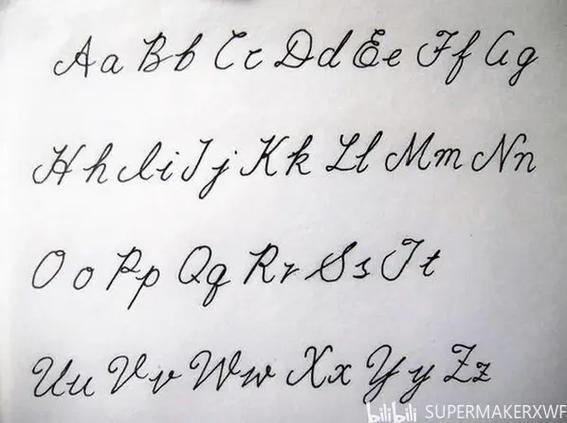 Aa Bb Cc Dd Ee Ff Gg
Hh Ii Jj Kk Ll Mm Nn
Oo Pp Qq Rr Ss Tt
Uu Vv Ww Xx Yy Zz
bilibili SUPERMAKERXWF